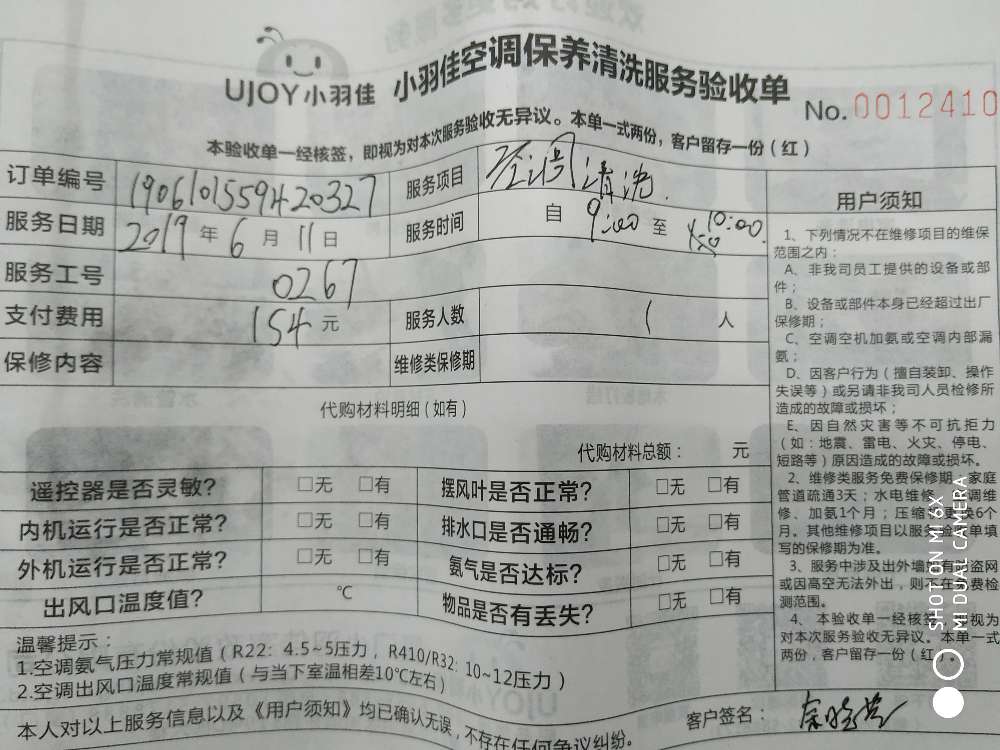 UJOY小羽佳 小羽佳空调保养清洗服务验收单
No.0012410
本验收单一经核签，即视为对本次服务验收无异议。本单一式两份，客户留存一份（红）
订单编号 190610155942​0327 服务项目 空调清洗.
服务日期 2019年6月11日 服务时间 自9:00至 10:00.
服务工号 0267
支付费用 154元 服务人数 1人
保修内容 维修类保修期
代购材料明细（如有）
代购材料总额： 元
遥控器是否灵敏？ □无 □有 摆风叶是否正常？ □无 □有
内机运行是否正常？ □无 □有 排水口是否通畅？ □无 □有
外机运行是否正常？ □无 □有 氨气是否达标？ □无 □有
出风口温度值？ ℃ 物品是否有丢失？ □无 □有
温馨提示：
1.空调氨气压力常规值（R22：4.5~5压力，R410/R32：10~12压力）
2.空调出风口温度常规值（与当下室温相差10℃左右）
本人对以上服务信息以及《用户须知》均已确认无误，不存在任何争议纠纷。
客户签名：
用户须知
1、下列情况不在维修项目的维保
范围之内：
A、非我司员工提供的设备或部
件；
B、设备或部件本身已经超过出厂
保修期；
C、空调空机加氨或空调内部漏
氨；
D、因客户行为（擅自装卸、操作
失误等）或另请非我司人员检修所
造成的故障或损坏；
E、因自然灾害等不可抗拒力
（如：地震、雷电、火灾、停电、
短路等）原因造成的故障或损坏。
2、维修类服务免费保修期：家庭
管道疏通3天；水电维修、 调维
修、加氨1个月；压缩 更换6个
月。其他维修项目以服务验 单填
写的保修期为准。
3、服务中涉及出外墙 有防盗网
或因高空无法外出，则不在 费检
测范围。
4、本验收单一经核签 视为
对本次服务验收无异议。本单一式
两份，客户留存一份（红）。
SHOT ON MI 6X
MI DUAL CAMERA